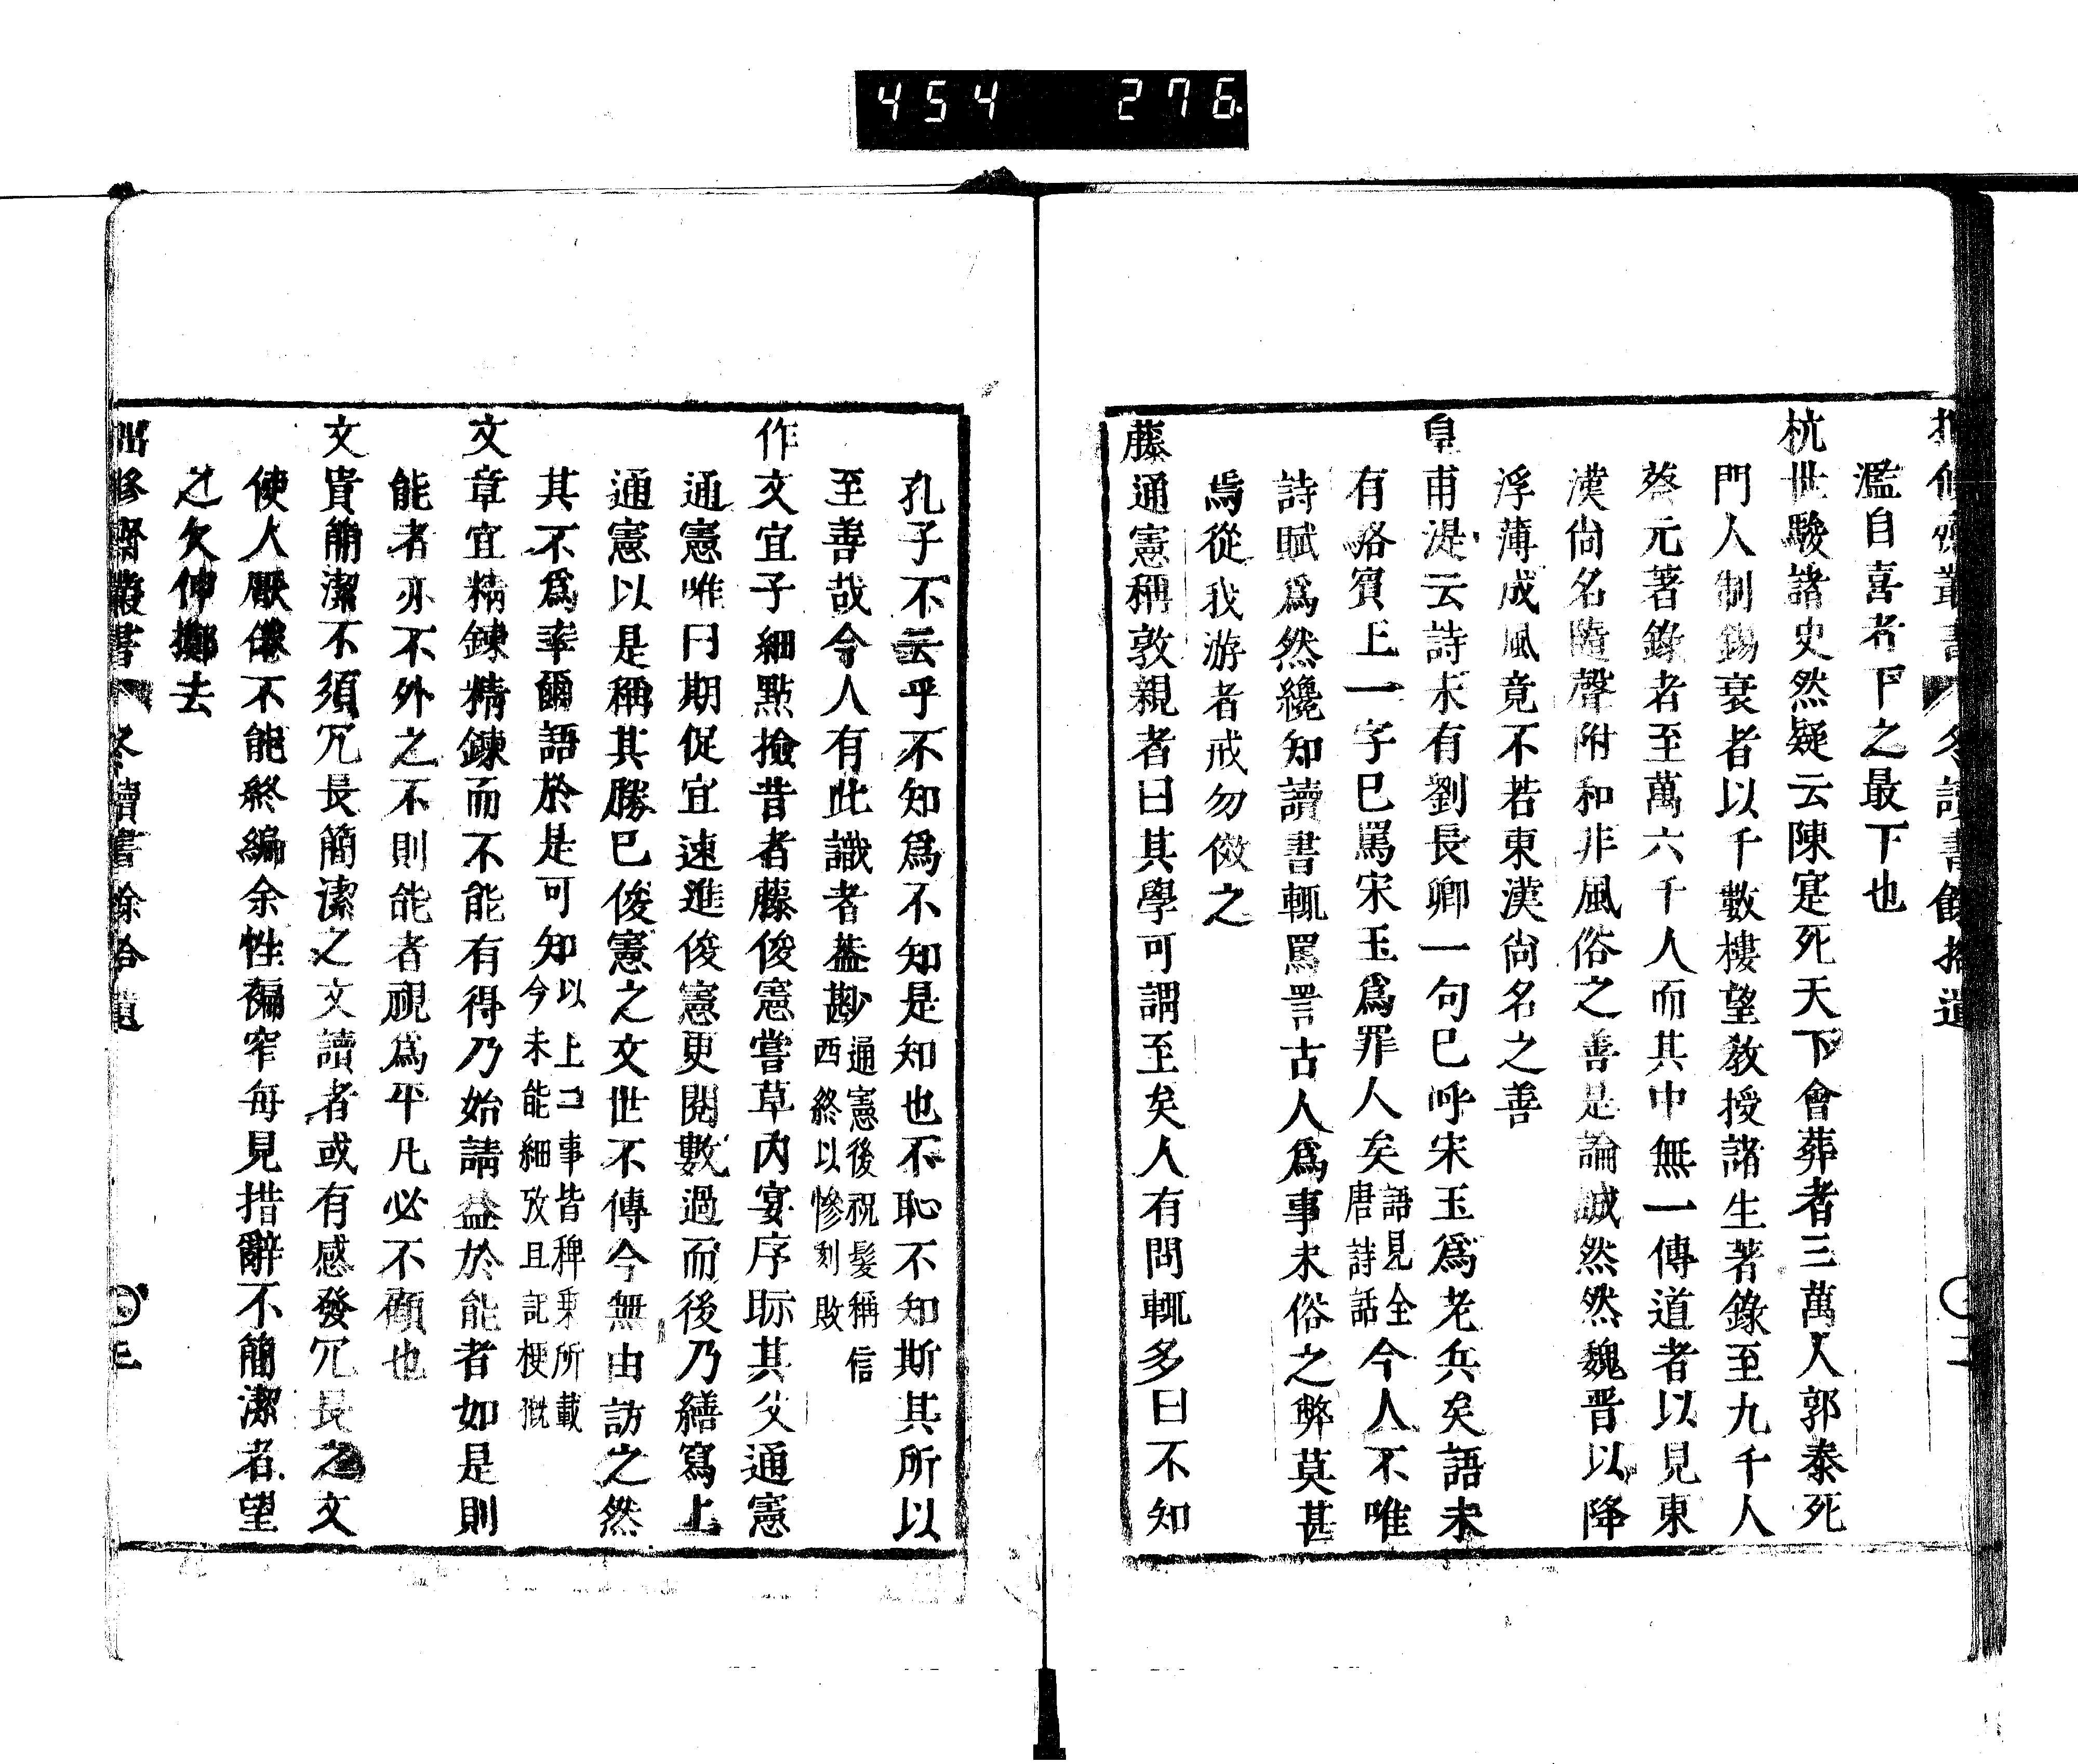 454 276
修齋叢書 冬讀書餘拾遺 二
濫自喜者下之最下也
杭世駿諸史然疑云陳寔死天下會葬者三萬人郭泰死
門人制錫衰者以千數樓望敎授諸生著錄至九千人
蔡元著錄者至萬六千人而其中無一傳道者以見東
漢尙名隨聲附和非風俗之善是論誠然然魏晋以降
浮薄成風竟不若東漢尙名之善
皇甫湜云詩未有劉長卿一句巳呼宋玉爲老兵矣語未
有駱賓上一字巳罵宋玉爲罪人矣語見全唐詩話今人不唯
詩賦爲然纔知讀書輒罵詈古人爲事末俗之弊莫甚
焉從我游者戒勿傚之
藤通憲稱敦親者曰其學可謂至矣人有問輒多曰不知
孔子不云乎不知爲不知是知也不恥不知斯其所以
至善哉今人有此識者葢尠通憲後祝髮稱信西終以慘刻敗
作文宜子細點撿昔者藤俊憲嘗草内宴序眎其父通憲
通憲唯曰期促宜速進俊憲更閱數過而後乃繕寫上
通憲以是稱其勝巳俊憲之文世不傳今無由訪之然
其不爲率爾語於是可知以上コ事皆稗乘所載今未能細攷且記梗槪
文章宜精鍊精鍊而不能有得乃始請益於能者如是則
能者亦不外之不則能者視爲平凡必不顧也
文貴簡潔不須冗長簡潔之文讀者或有感發冗長之文
使人厭倦不能終編余性褊窄每見措辭不簡潔者望
之欠伸擲去
修齋叢書 冬讀書餘拾遺 三